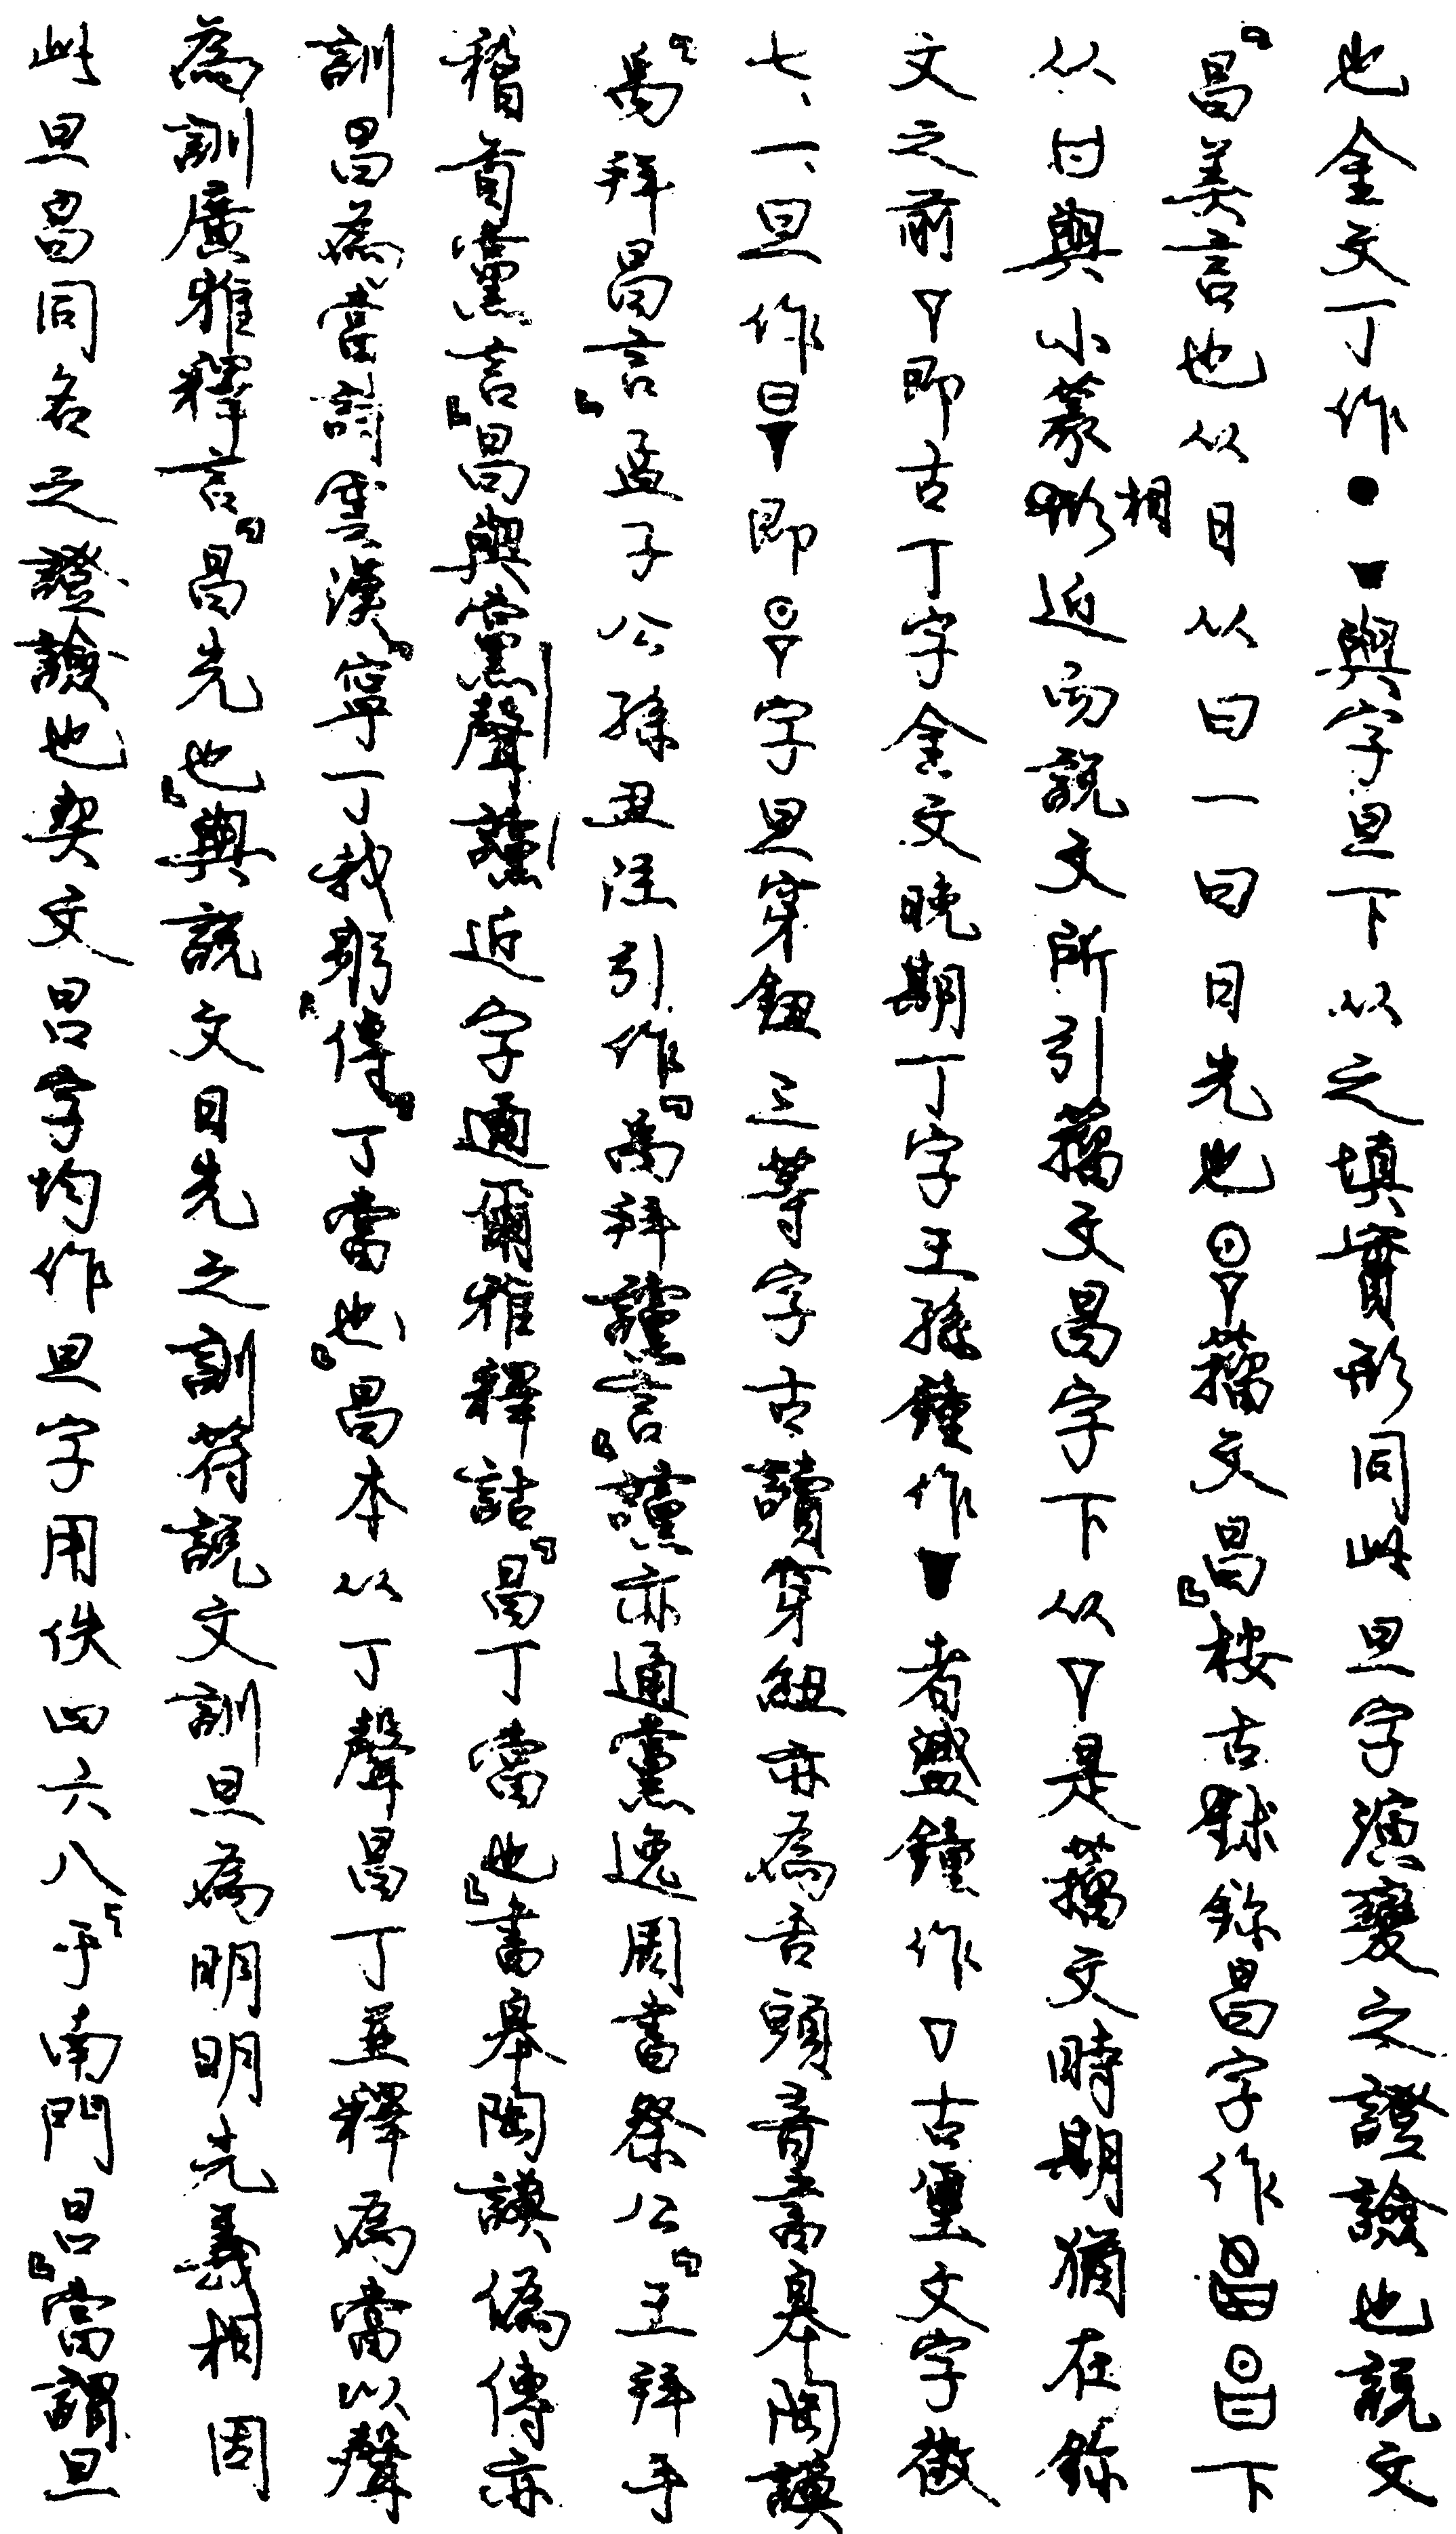 也金文丁作●▼與字旦下以之填實形同此旦字演變之證驗也說文
『昌美言也从日从曰一曰日先也籀文昌』按古鉥鉨昌字作下
从曰與小篆形相近而說文所引籀文昌字下从▽是籀文時期猶在鉨
文之前▽即古丁字金文晚期丁字王孫鐘作▼者盛鐘作▽古璽文字徵
七、一、旦作即字旦穿鈕三等字古讀穿紐亦為舌頭音書皋陶謨
『禹拜昌言』孟子公孫丑注引作『禹拜讜言』讜亦通黨逸周書祭公『王拜手
稽首黨言』昌與黨聲讜近字通爾雅釋詁『昌丁當也』書皋陶謨偽傳亦
訓昌為當詩雲漢『寧丁我躬』傳『丁當也』昌本从丁聲昌丁並釋為當以聲
為訓廣雅釋言『昌先也』與說文日先之訓符說文訓旦為明明先義相因
此旦昌同名之證驗也契文昌字均作旦字用佚四六八『于南門昌』當謂旦